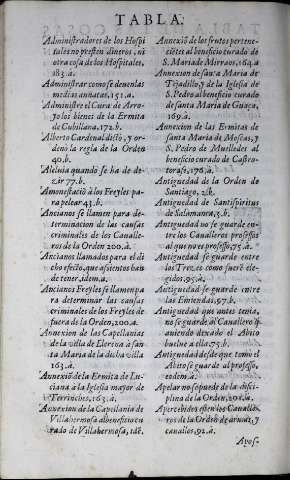 TABLA.
Administradores de los Hospi
tales no presten dineros, ni
otra cosa de los Hospitales,
183.a
Administrar como se deuen las
medias annatas, 151.a.
Administre el Cura de Arro-
yo los bienes de la Ermita
de Cubillana, 172.b.
Alberto Cardenal dio, y or-
denò la regla de la Orden
40.b.
Aleluia quando se ha de de-
zir 77.b.
Amonestaciõ a los Freyles pa-
ra pelear 43.b.
Ancianos se llamen para de-
terminacion de las causas
criminales de los Caualle-
ros de la Orden 200.a.
Ancianos llamados para el di
cho efecto, que asientos han
de tener, idem.a.
Ancianos Freyles se llamen pa
ra determinar las causas
criminales de los Freyles de
fuera de la Orden, 200.a.
Annexion de las Capellanias
de la villa de Llerena à san
ta Maria de la dicha villa
163.a.
Annexiõ de la Ermita de Lu-
ciana a la Iglesia mayor de
Terrinches, 163.a.
Annexion de la Capellania de
Villahermosa al beneficio cu
rado de Villahermosa, idẽ.
Annexiõ de los frutos pertene-
ciẽtes al beneficio curado de
S. Maria de Mirraos, 164.a
Annexion de santa Maria de
Tejadillo, y de la Iglesia de
S. Pedro al beneficio curado
de santa Maria de Guaça,
169.a
Annexion de las Ermitas de
santa Maria de y
S. Pedro de Muelledes al
beneficio curado de Castro-
torafe, 176.a.
Antiguedad de la Orden de
Santiago, 2.b.
Antiguedad de Santispiritus
de Salamanca, 3.b.
Antiguedad no se guarde en-
tre los Caualleros professos
al que no es professo, 75.a.
Antiguedad se guarde entre
los Trezes como fuerẽ ele-
gidos, 95.a.
Antiguedad se guarde entre
las Emiendas, 97.b.
Antiguedad que antes tenia,
no se guarde al Cauallero q̃
auiendo dexado el Abito
buelue a ella, 75.b.
Antiguedad desde que tomo el
Abito se guarde al professo,
eodem.a.
Apelar no se puede de la disci-
plina de la Orden, 201.a.
Apercebidos estẽ los Caualle-
ros de la Orden de armas, y
cauallos, 92.a.
Apos-